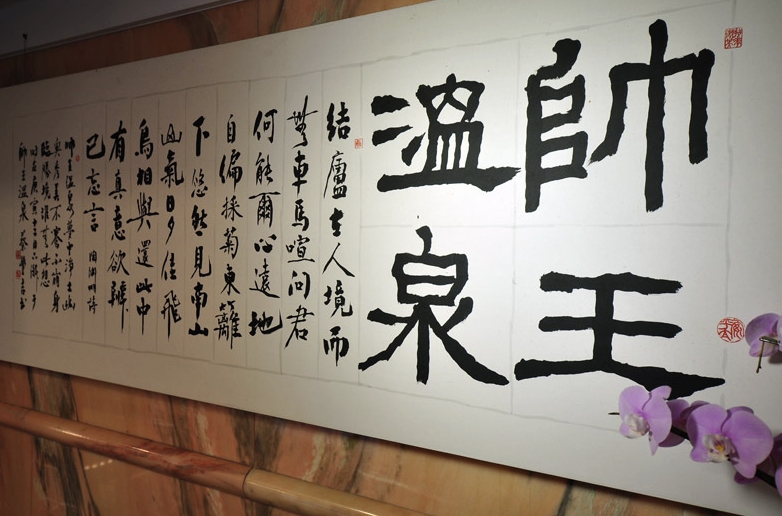 帥王
溫泉
結廬在人境而
無車馬喧問君
何能爾心遠地
自偏採菊東籬
下悠然見南山
山氣日夕佳飛
鳥相與還此中
有真意欲辨
已忘言 陶淵明詩
帥王溫泉
時在庚寅
帥王溫泉 蔡